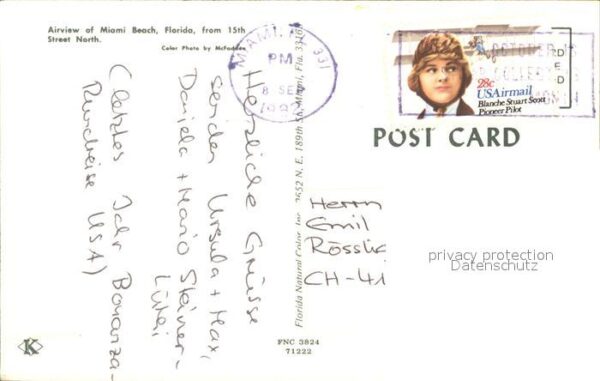 Airview of Miami Beach, Florida, from 15th
Street North.
Color Photo by McFadden
MIAMI, FL 331
PM
8 SEP
28c
USAirmail
Blanche Stuart Scott
Pioneer Pilot
OCTOBER IS
POST CARD
Herzliche Grüsse
senden Ursula + Max,
Daniela + Mario Steiner-
Lüthi
(letztes Jahr Bonanza-
Rundreise USA)
Florida Natural Color, Inc. 2652 N. E. 189th St., Miami, Fla. 3316
Herrn
Emil
Rössli
CH-41
privacy protection
Datenschutz
K
FNC 3824
71222